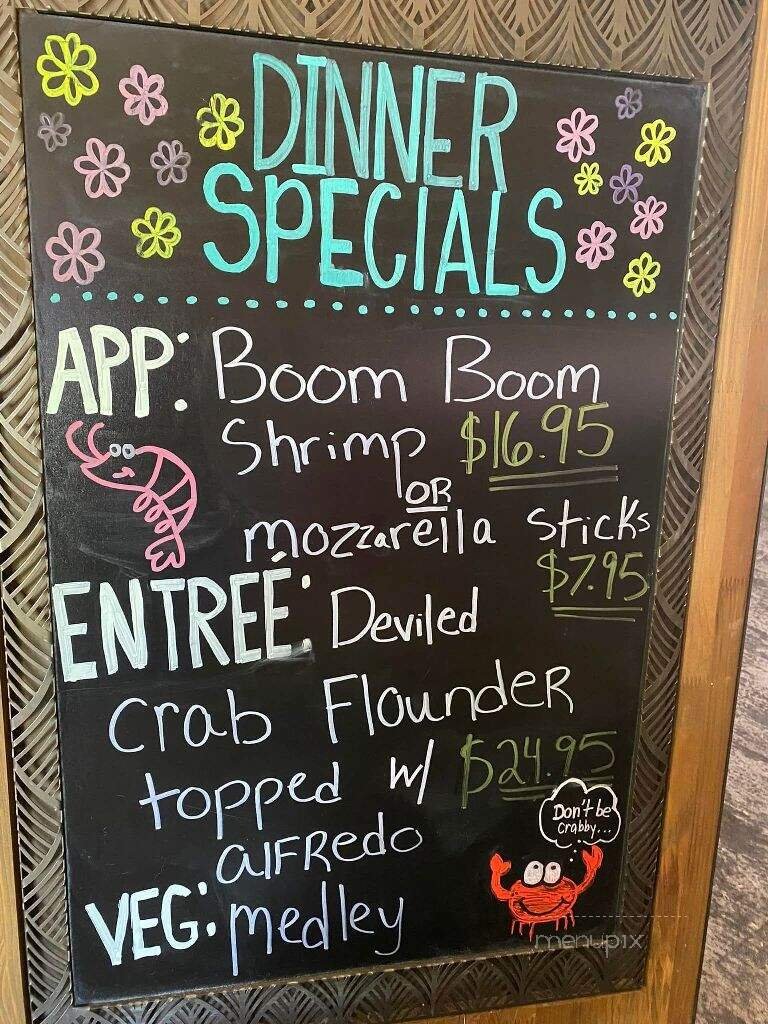 DINNER
SPECIALS
APP: Boom Boom
Shrimp $16.95
OR
mozzarella sticks
$7.95
ENTREÉ: Deviled
Crab Flounder
topped w/ $24.95
alFRedo
VEG: medley
Don't be
crabby...
menupix